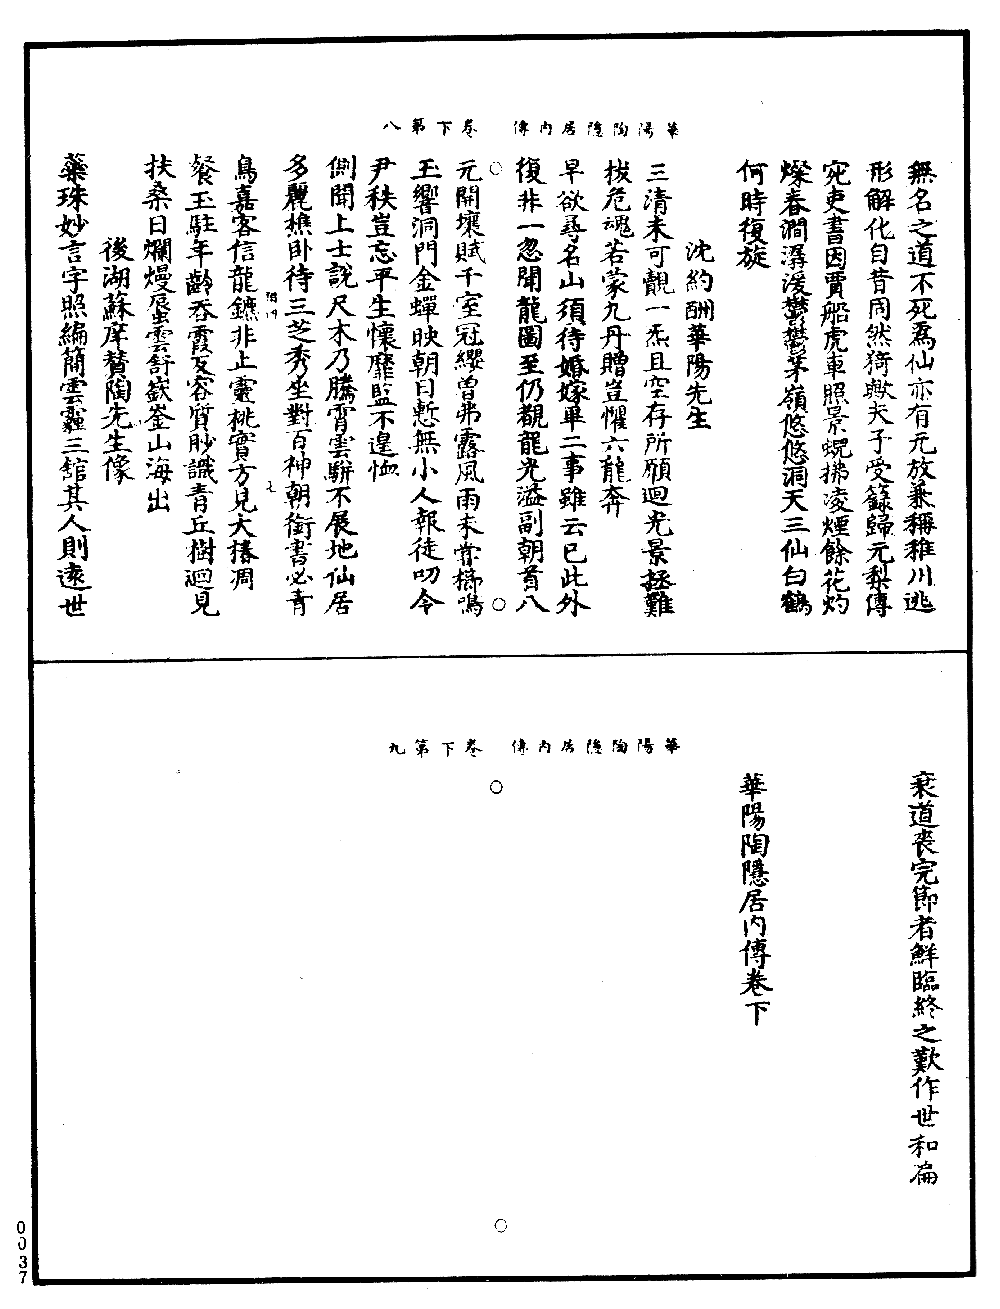 華陽陶隱居內傳　卷下第八
無名之道不死爲仙亦有元放兼稱稚川逃
形解化自昔同然猗歟夫子受籙歸元梨傳
宛吏書因賈船虎車照景蜺拂凌煙餘花灼
燦春澗潺湲鬱鬱茅嶺悠悠洞天三仙白鶴
何時復旋
沈約酬華陽先生
三清未可覿一炁且空存所願迴光景拯難
拔危魂若蒙九丹贈豈懼六龍奔
早欲尋名山須待婚嫁畢二事雖云已此外
復非一忽聞龍圖至仍覩龍光溢副朝首八
元開壤賦千室冠纓曾弗露風雨未嘗櫛鳴
玉響洞門金蟬映朝日慙無小人報徒叨令
尹秩豈忘平生懷靡盬不遑恤
側聞上士說尺木乃騰霄雲駢不展地仙居
多麗樵卧待三芝秀坐對百神朝銜書必青
鳥嘉客信龍鑣非止靈桃實方見大椿凋
餐玉駐年齡吞霞反容質眇識青丘樹迴見
扶桑日爛熳蜃雲舒嶔崟山海出
後湖蘇庠贊陶先生像
蘂珠妙言字照編簡雲霾三舘其人則遠世
華陽陶隱居內傳　卷下第九
衰道喪完節者鮮臨終之歎作世和扁
華陽陶隱居內傳卷下
0037